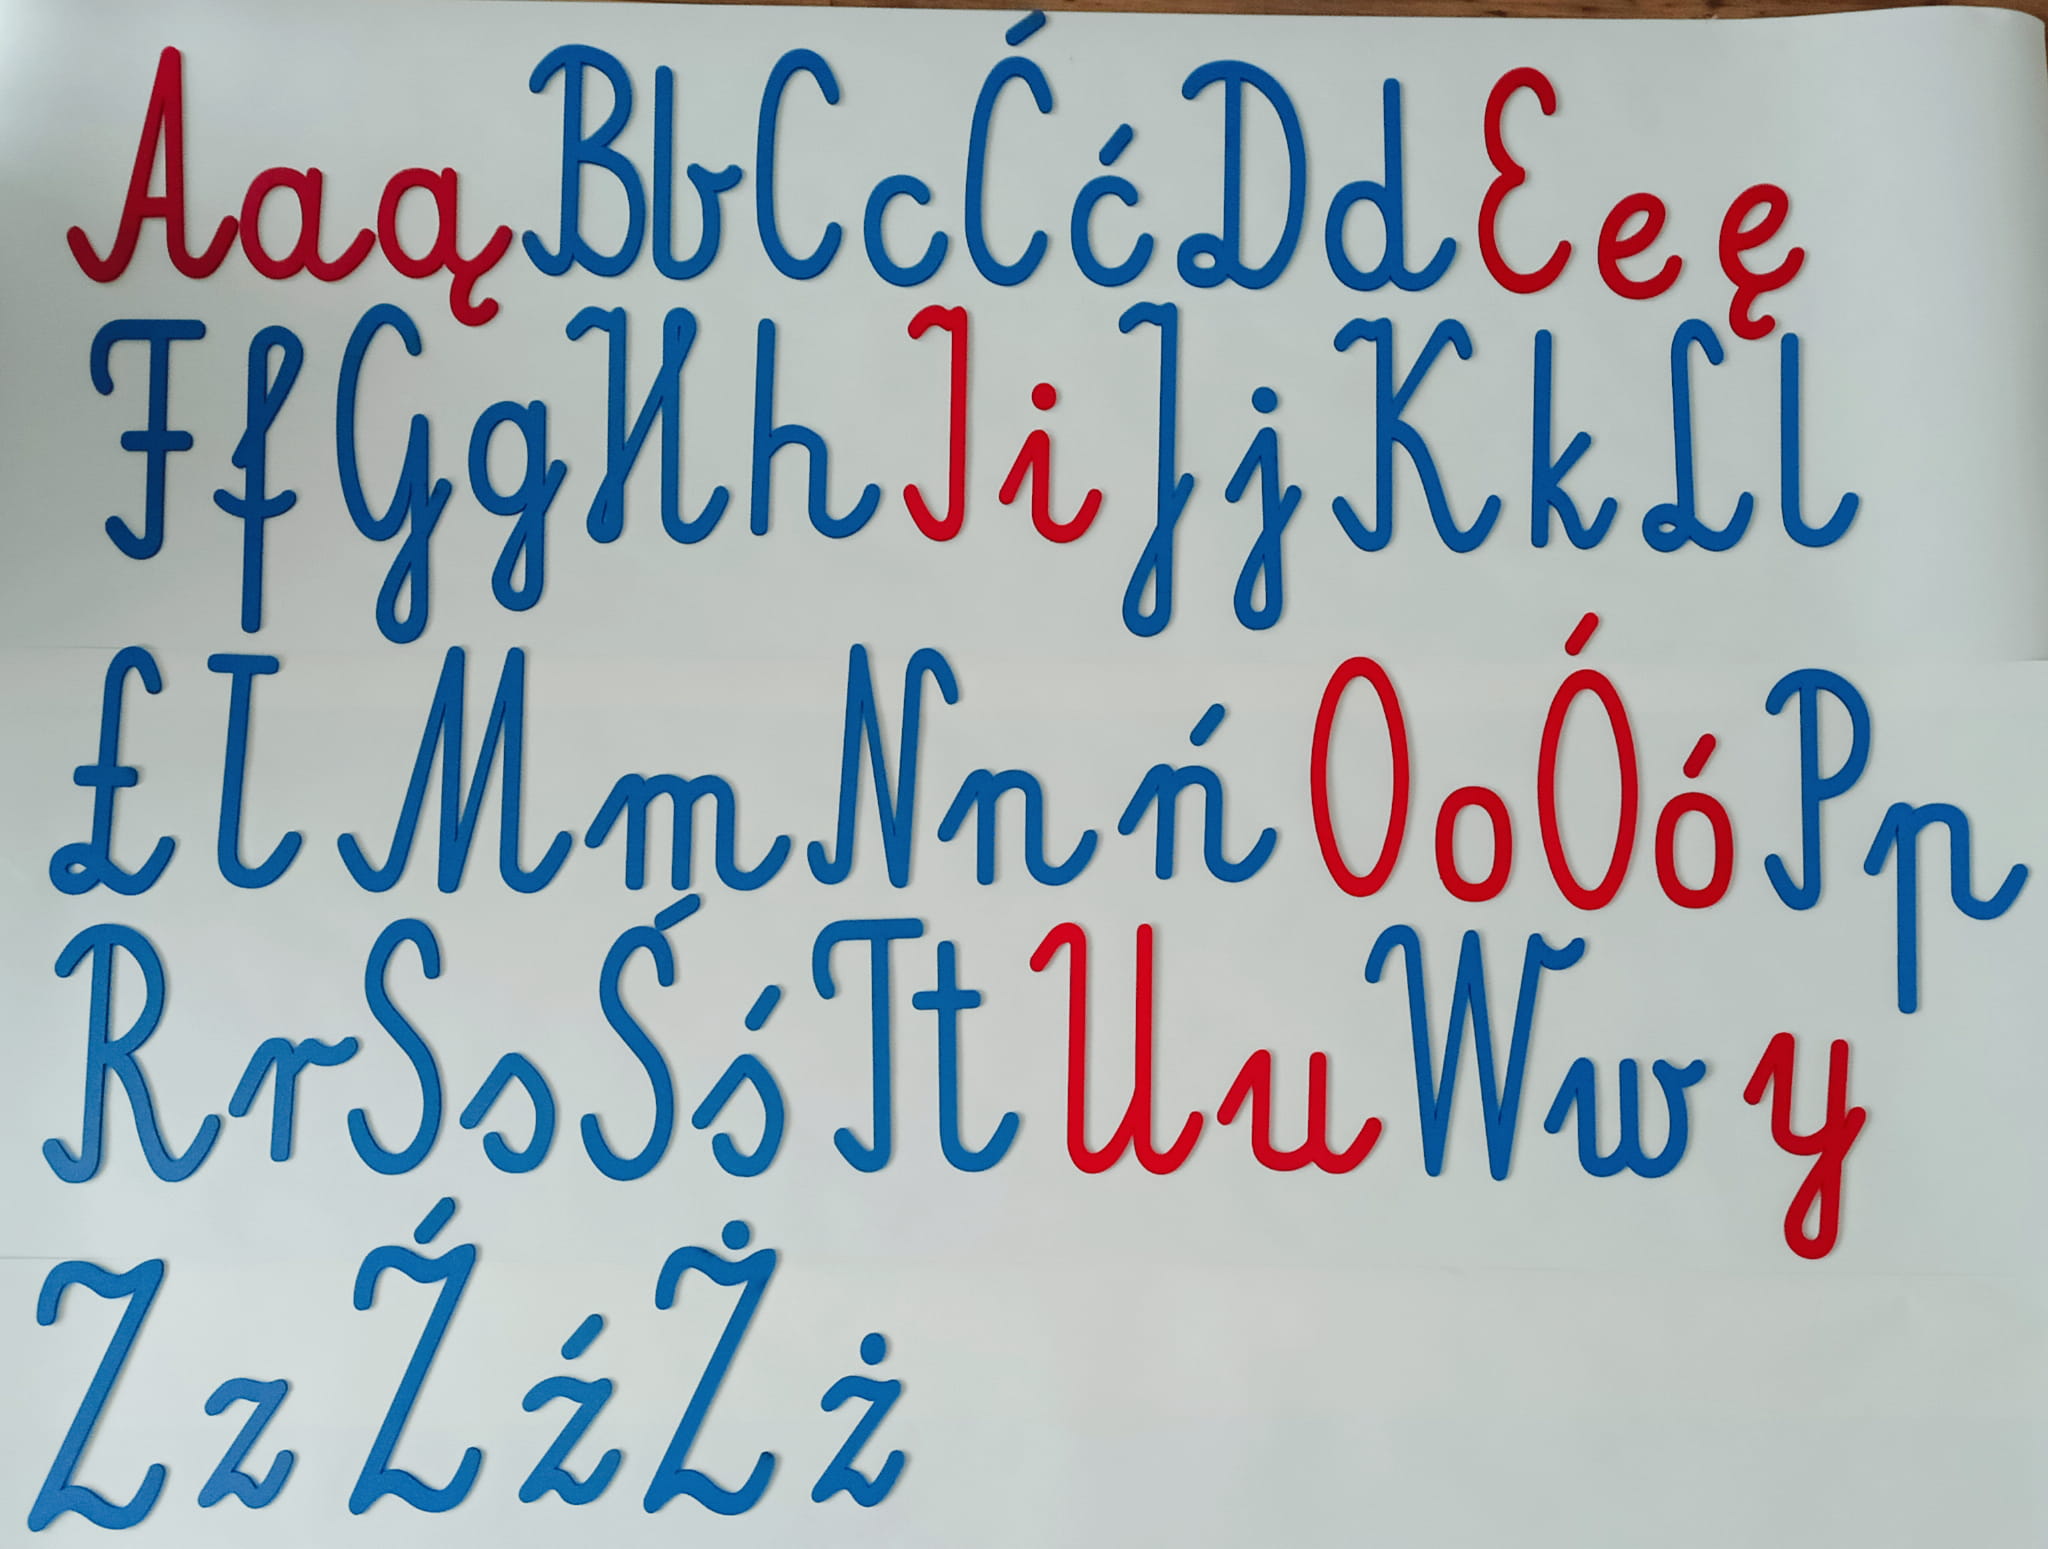 AaąBbCcĆćDdEeę
FfGgHhIiJjKkLl
ŁłMmNnńOoÓóPp
RrSsŚśTtUuWwy
ZzŹźŻż